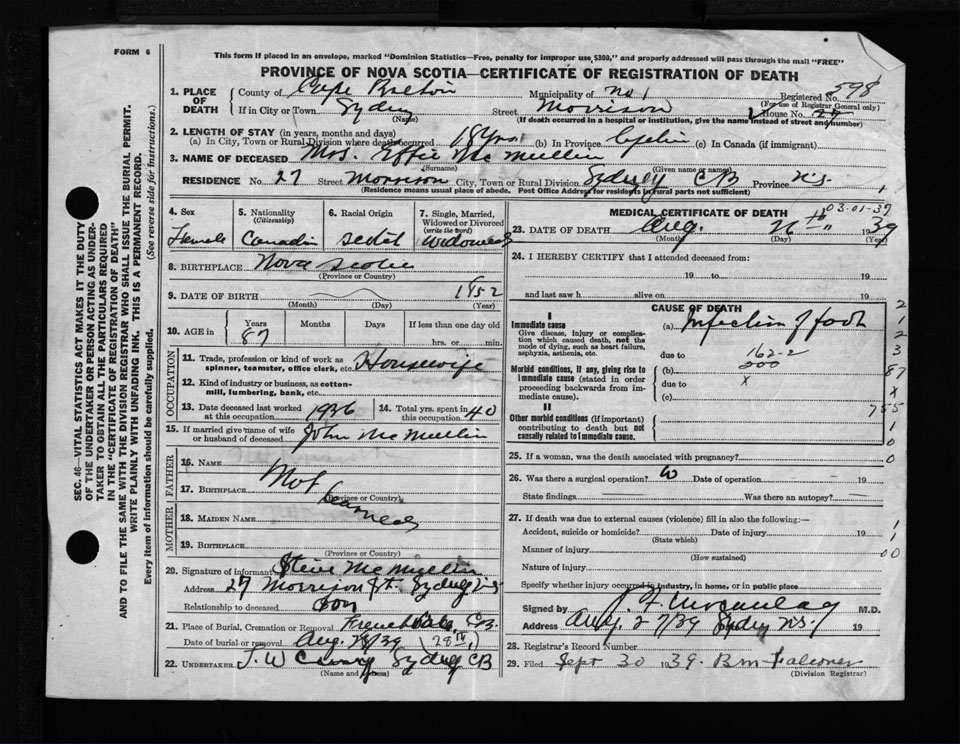 FORM 6
This form if placed in an envelope, marked "Dominion Statistics—Free, penalty for improper use, $300," and properly addressed will pass through the mail "FREE"
PROVINCE OF NOVA SCOTIA—CERTIFICATE OF REGISTRATION OF DEATH
1. PLACE OF DEATH County of Cape Breton Municipality of No 1 Registered No. 598
(For use of Registrar General only)
If in City or Town Sydney Street Morrison House No. 27
(Name) (If death occurred in a hospital or institution, give the name instead of street and number)
2. LENGTH OF STAY (in years, months and days)
(a) In City, Town or Rural Division where death occurred 18 yrs (b) In Province (c) In Canada (if immigrant)
3. NAME OF DECEASED Mrs. Effie McMullin
(Surname) (Given name or names)
RESIDENCE No. 27 Street Morrison City, Town or Rural Division Sydney CB Province N.S.
(Residence means usual place of abode. Post Office Address for residents in rural parts not sufficient)
SEC. 46—VITAL STATISTICS ACT MAKES IT THE DUTY
OF THE UNDERTAKER OR PERSON ACTING AS UNDER-
TAKER TO OBTAIN ALL THE PARTICULARS REQUIRED
IN THE "CERTIFICATE OF REGISTRATION OF DEATH"
AND TO FILE THE SAME WITH THE DIVISION REGISTRAR WHO SHALL ISSUE THE BURIAL PERMIT.
WRITE PLAINLY WITH UNFADING INK. THIS IS A PERMANENT RECORD.
Every item of information should be carefully supplied. (See reverse side for instructions.)
4. Sex 5. Nationality 6. Racial Origin 7. Single, Married,
(Citizenship) Widowed or Divorced
(write the word)
Female Canadian Scotch Widowed
8. BIRTHPLACE Nova Scotia
(Province or Country)
9. DATE OF BIRTH 1852
(Month) (Day) (Year)
10. AGE in Years Months Days If less than one day old
87 hrs. or min.
OCCUPATION
11. Trade, profession or kind of work as
spinner, teamster, office clerk, etc. Housewife
12. Kind of industry or business, as cotton-
mill, lumbering, bank, etc.
13. Date deceased last worked at this occupation 1936 14. Total yrs. spent in this occupation 40
15. If married give name of wife
or husband of deceased John McMullin
FATHER
16. Name
17. BIRTHPLACE Not Learned
(Province or Country)
MOTHER
18. MAIDEN NAME
19. BIRTHPLACE
(Province or Country)
20. Signature of informant Steve McMullin
Address 27 Morrison St. Sydney N.S.
Relationship to deceased son
21. Place of Burial, Cremation or Removal Frenchvale C.B.
Date of burial or removal Aug. 28/39 (28th)
22. UNDERTAKER J. W. Sydney CB
(Name and Address)
MEDICAL CERTIFICATE OF DEATH
03-01-39
23. DATE OF DEATH Aug. 26th 1939
(Month) (Day) (Year)
24. I HEREBY CERTIFY that I attended deceased from:
19 to 19
and last saw h alive on 19
CAUSE OF DEATH
I
Immediate cause (a) Infection of foot
Give disease, injury or complica-
tion which caused death, not the
mode of dying, such as heart failure,
asphyxia, asthenia, etc.
due to 162-2
200
Morbid conditions, if any, giving rise to (b)
immediate cause (stated in order due to X
proceeding backwards from im-
mediate cause). (c)
II
Other morbid conditions (if important)
contributing to death but not
causally related to immediate cause.
2
1
2
3
87
X
755
1
0
25. If a woman, was the death associated with pregnancy? 0
26. Was there a surgical operation? Date of operation 19
State findings Was there an autopsy?
27. If death was due to external causes (violence) fill in also the following:—
Accident, suicide or homicide? Date of injury 19 1
(State which)
Manner of injury 00
(How sustained)
Nature of injury
Specify whether injury occurred in industry, in home, or in public place
Signed by M.D.
Address Aug. 27/39 Sydney N.S. 19
28. Registrar's Record Number
29. Filed Sept 30 1939. B M Falconer
(Division Registrar)